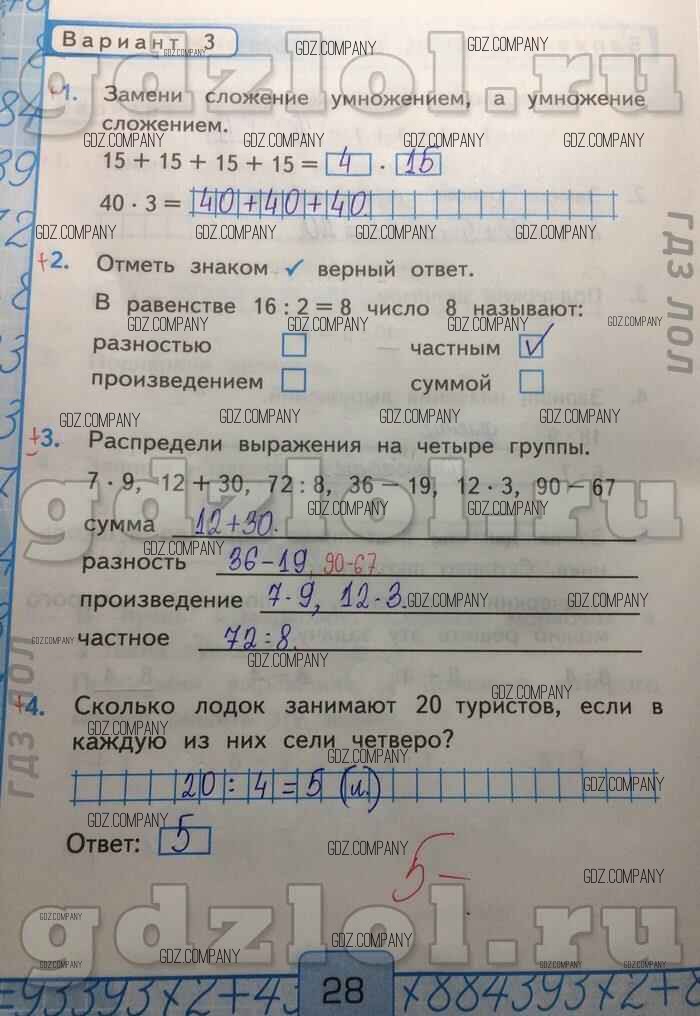 Вариант 3
1. Замени сложение умножением, а умножение
сложением.
15 + 15 + 15 + 15 = 4 · 15
40 · 3 = 40+40+40
+2. Отметь знаком ✓ верный ответ.
В равенстве 16 : 2 = 8 число 8 называют:
разностью частным ✓
произведением суммой
+3. Распредели выражения на четыре группы.
7 · 9, 12 + 30, 72 : 8, 36 − 19, 12 · 3, 90 − 67
сумма 12+30.
разность 36-19, 90-67.
произведение 7·9, 12·3.
частное 72:8.
+4. Сколько лодок занимают 20 туристов, если в
каждую из них сели четверо?
20 : 4 = 5 (л.)
Ответ: 5
5-
28
=9339372+43 788439372+8
gdzlol.ru
gdzlol.ru
gdzlol.ru
ГДЗ ЛОЛ
ГДЗ ЛОЛ
GDZ.COMPANY